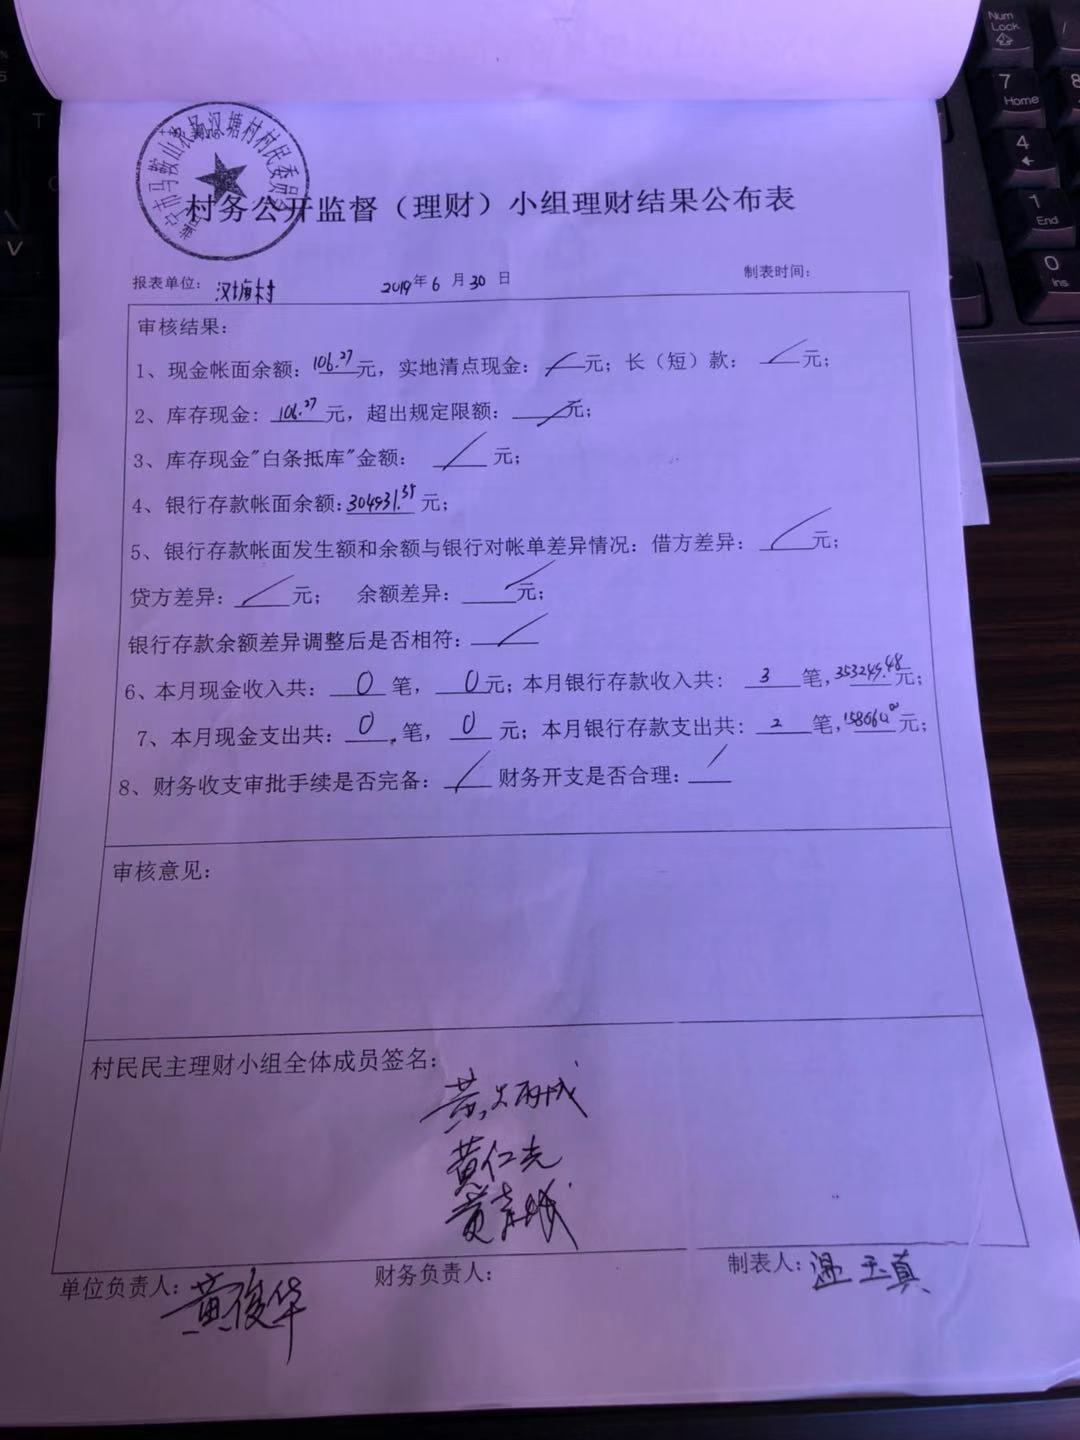 普宁市马鞍山农场汉塘村村民委员会
村务公开监督（理财）小组理财结果公布表
报表单位：汉塘村 2019年6月30日 制表时间：
审核结果：
1、现金帐面余额：106.27元，实地清点现金：／元；长（短）款：／元；
2、库存现金：106.27元，超出规定限额：／元；
3、库存现金"白条抵库"金额：／元；
4、银行存款帐面余额：304931.35元；
5、银行存款帐面发生额和余额与银行对帐单差异情况：借方差异：／元；
贷方差异：／元； 余额差异：／元；
银行存款余额差异调整后是否相符：／
6、本月现金收入共：0笔，0元；本月银行存款收入共：3笔，353249.48元；
7、本月现金支出共：0笔，0元；本月银行存款支出共：2笔，158664.00元；
8、财务收支审批手续是否完备：／ 财务开支是否合理：／
审核意见：
村民民主理财小组全体成员签名：
黄炳成
黄仁光
黄
单位负责人：黄俊华 财务负责人： 制表人：温玉真
Num Lock
7 Home
8
4
1 End
0 Ins
T
V